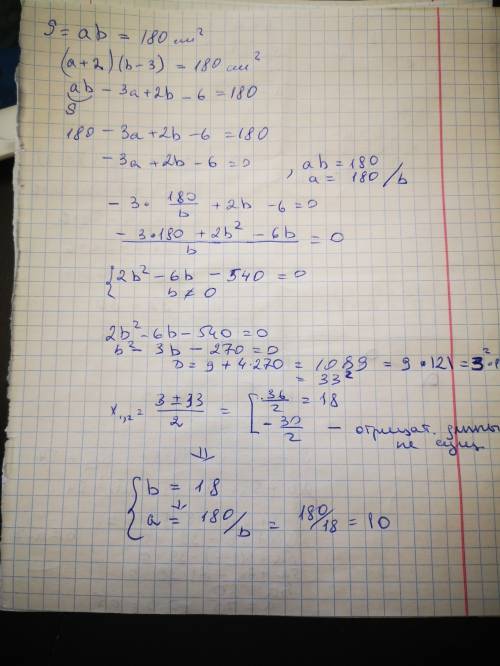 S = ab = 180 см²
(a+2)(b-3) = 180 см²
ab - 3a + 2b - 6 = 180
S
180 - 3a + 2b - 6 = 180
- 3a + 2b - 6 = 0 , ab = 180
a = 180/b
- 3 · 180/b + 2b - 6 = 0
(- 3·180 + 2b² - 6b)/b = 0
{ 2b² - 6b - 540 = 0
b ≠ 0
2b² - 6b - 540 = 0
b² - 3b - 270 = 0
D = 9 + 4·270 = 1089 = 9·121 = 3²·
= 33²
x₁,₂ = (3 ± 33)/2 = [ 36/2 = 18
- 30/2 - отрицат. длины
не сущ.
⇓
{ b = 18
⇓
a = 180/b = 180/18 = 10